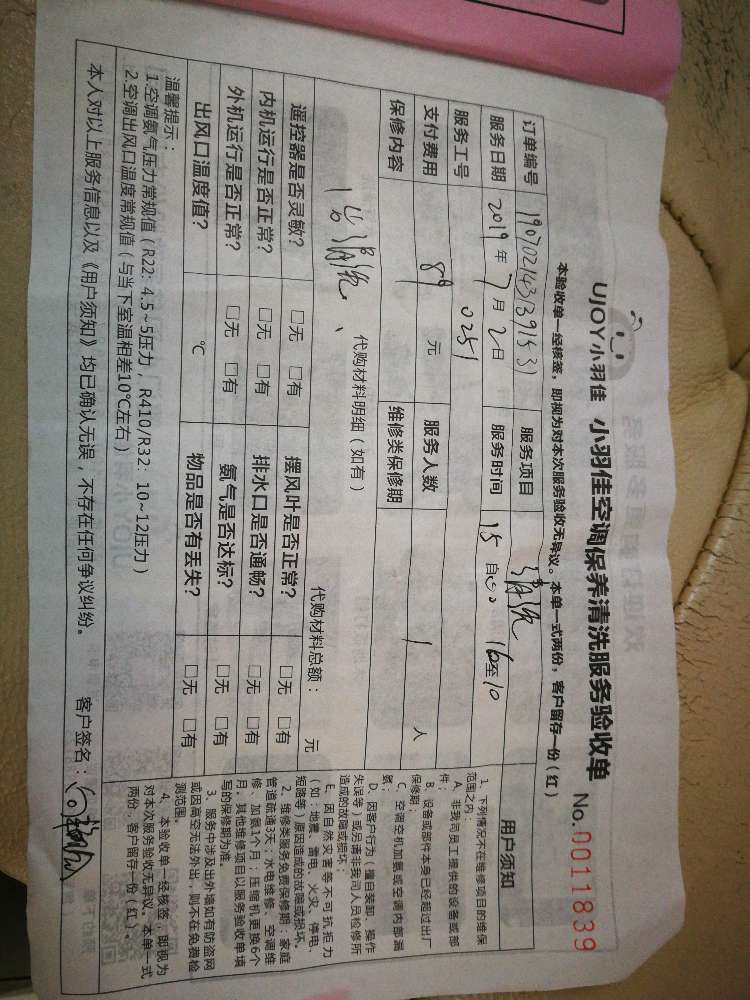 UJOY小羽佳 小羽佳空调保养清洗服务验收单
No.0011839
本验收单一经核签，即视为对本次服务验收无异议。本单一式两份，客户留存一份（红）
订单编号 服务项目 清洗
服务日期 2019年7月2日 服务时间 15 自 16至10
服务工号 0251
支付费用 元 服务人数 1 人
保修内容 维修类保修期
代购材料明细（如有）
清洗
代购材料总额： 元
遥控器是否灵敏？ □无 □有 摆风叶是否正常？ □无 □有
内机运行是否正常？ □无 □有 排水口是否通畅？ □无 □有
外机运行是否正常？ □无 □有 氨气是否达标？ □无 □有
出风口温度值？ ℃ 物品是否有丢失？ □无 □有
温馨提示：
1.空调氨气压力常规值（R22：4.5~5压力，R410/R32：10~12压力）
2.空调出风口温度常规值（与当下室温相差10℃左右）
本人对以上服务信息以及《用户须知》均已确认无误，不存在任何争议纠纷。 客户签名：
用户须知
1、下列情况不在维修项目的维保
范围之内：
A、非我司员工提供的设备或部
件；
B、设备或部件本身已经超过出厂
保修期；
C、空调空机加氨或空调内部漏
氨；
D、因客户行为（擅自装卸、操作
失误等）或另请非我司人员检修所
造成的故障或损坏；
E、因自然灾害等不可抗拒力
（如：地震、雷电、火灾、停电、
短路等）原因造成的故障或损坏。
2、维修类服务免费保修期：家庭
管道疏通3天；水电维修、空调维
修、加氨1个月；压缩机更换6个
月；其他维修项目以服务验收单填
写的保修期为准。
3、服务中涉及出外墙如有防盗网
或因高空无法外出，则不在免费检
测范围。
4、本验收单一经核签，即视为
对本次服务验收无异议。本单一式
两份，客户留存一份（红）。